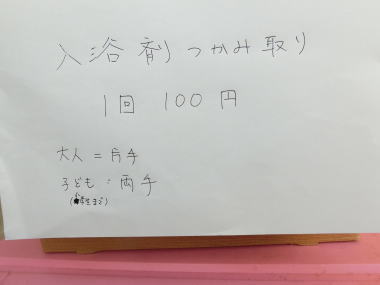 入浴剤つかみ取り
1回 100円
大人=片手
子ども:両手